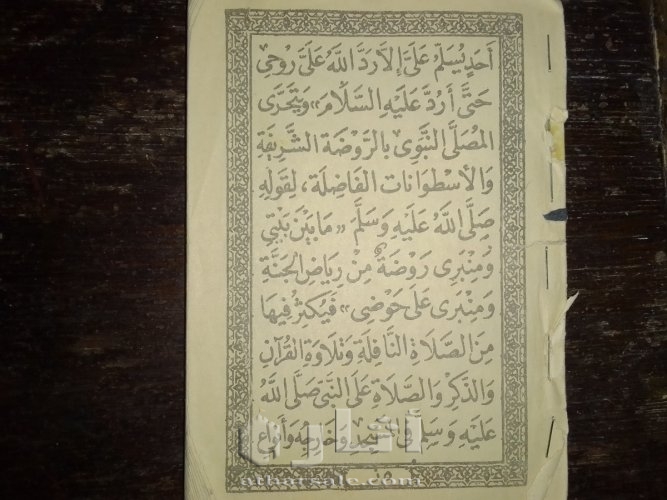 أَحَدٍ يُسَلِّمُ عَلَيَّ إِلَّا رَدَّ اللَّهُ عَلَيَّ رُوحِي
حَتَّى أَرُدَّ عَلَيْهِ السَّلَامَ» وَيَتَحَرَّى
المُصَلَّى النَّبَوِى بِالرَّوْضَةِ الشَّرِيفَةِ
وَالأُسْطُوَانَاتِ الفَاضِلَة، لِقَوْلِهِ
صَلَّى اللَّهُ عَلَيْهِ وَسَلَّمَ «مَا بَيْنَ بَيْتِي
وَمِنْبَرِى رَوْضَةٌ مِنْ رِيَاضِ الجَنَّة
وَمِنْبَرِى عَلَى حَوْضِى» فَيُكْثِرُ فِيهَا
مِنَ الصَّلَاةِ النَّافِلَةِ وَتِلَاوَةِ القُرْآنِ
وَالذِّكْرِ وَالصَّلَاةِ عَلَى النَّبِيِّ صَلَّى اللَّهُ
عَلَيْهِ وَسَلَّمَ فِي المَسْجِدِ وَخَارِجِهِ وَأَنْوَاعِ
atharsale.com